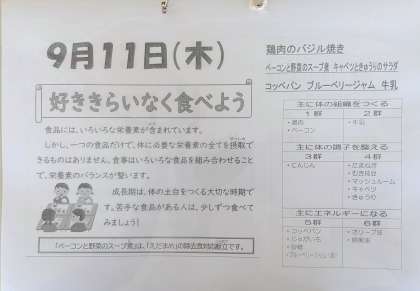 9月11日(木)
好ききらいなく食べよう
食品には、いろいろな栄養素が含まれています。
しかし、一つの食品だけで、体に必要な栄養素の全てを摂取で
きるものはありません。食事はいろいろな食品を組み合わせること
で、栄養素のバランスが整います。
成長期は、体の土台をつくる大切な時期で
す。苦手な食品がある人は、少しずつ食べて
みましょう!
「ベーコンと野菜のスープ煮」は、「えだまめ」の除去食対応献立です。
鶏肉のバジル焼き
ベーコンと野菜のスープ煮 キャベツときゅうりのサラダ
コッペパン ブルーベリージャム 牛乳
主に体の組織をつくる
1群 2群
・鶏肉 ・牛乳
・ベーコン
主に体の調子を整える
3群 4群
・にんじん ・たまねぎ
・むき枝豆
・マッシュルーム
・キャベツ
・きゅうり
主にエネルギーになる
5群 6群
・コッペパン ・オリーブ油
・じゃがいも
・砂糖
・ブルーベリージャム